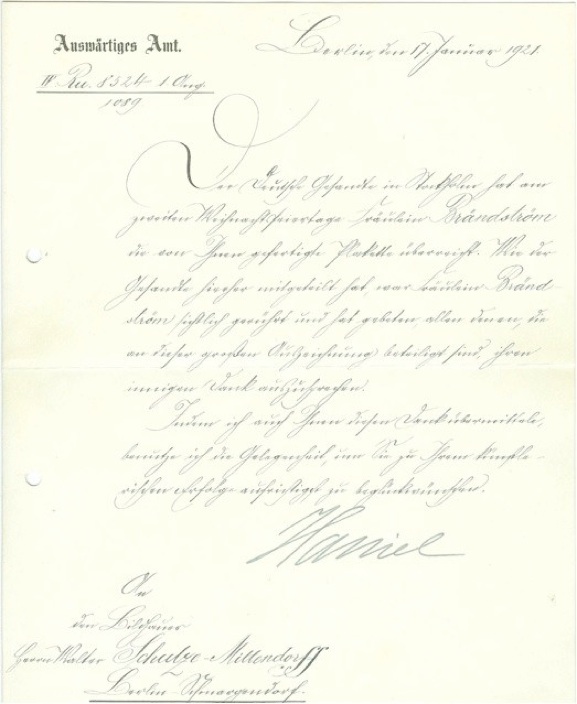 Auswärtiges Amt.
Berlin, den 17. Januar 1921
IV Ru. 8524 1 Ang.
1089
Der Deutsche Gesandte in Stockholm hat am
zweiten Weihnachtsfeiertage Fräulein Brändström
die von Ihnen gefertigte Plakette überreicht. Wie der
Gesandte hierher mitgeteilt hat, war Fräulein Bränd-
ström sichtlich gerührt und hat gebeten, allen denen, die
an dieser großen Auszeichnung beteiligt sind, ihren
innigen Dank auszusprechen.
Indem ich auch Ihnen diesen Dank übermittele,
benutze ich die Gelegenheit, um Sie zu Ihrem künstle-
rischen Erfolge aufrichtigst zu beglückwünschen.
Haniel
An
den Bildhauer
Herrn Walter Schulze-Mittendorff
Berlin-Schmargendorf.